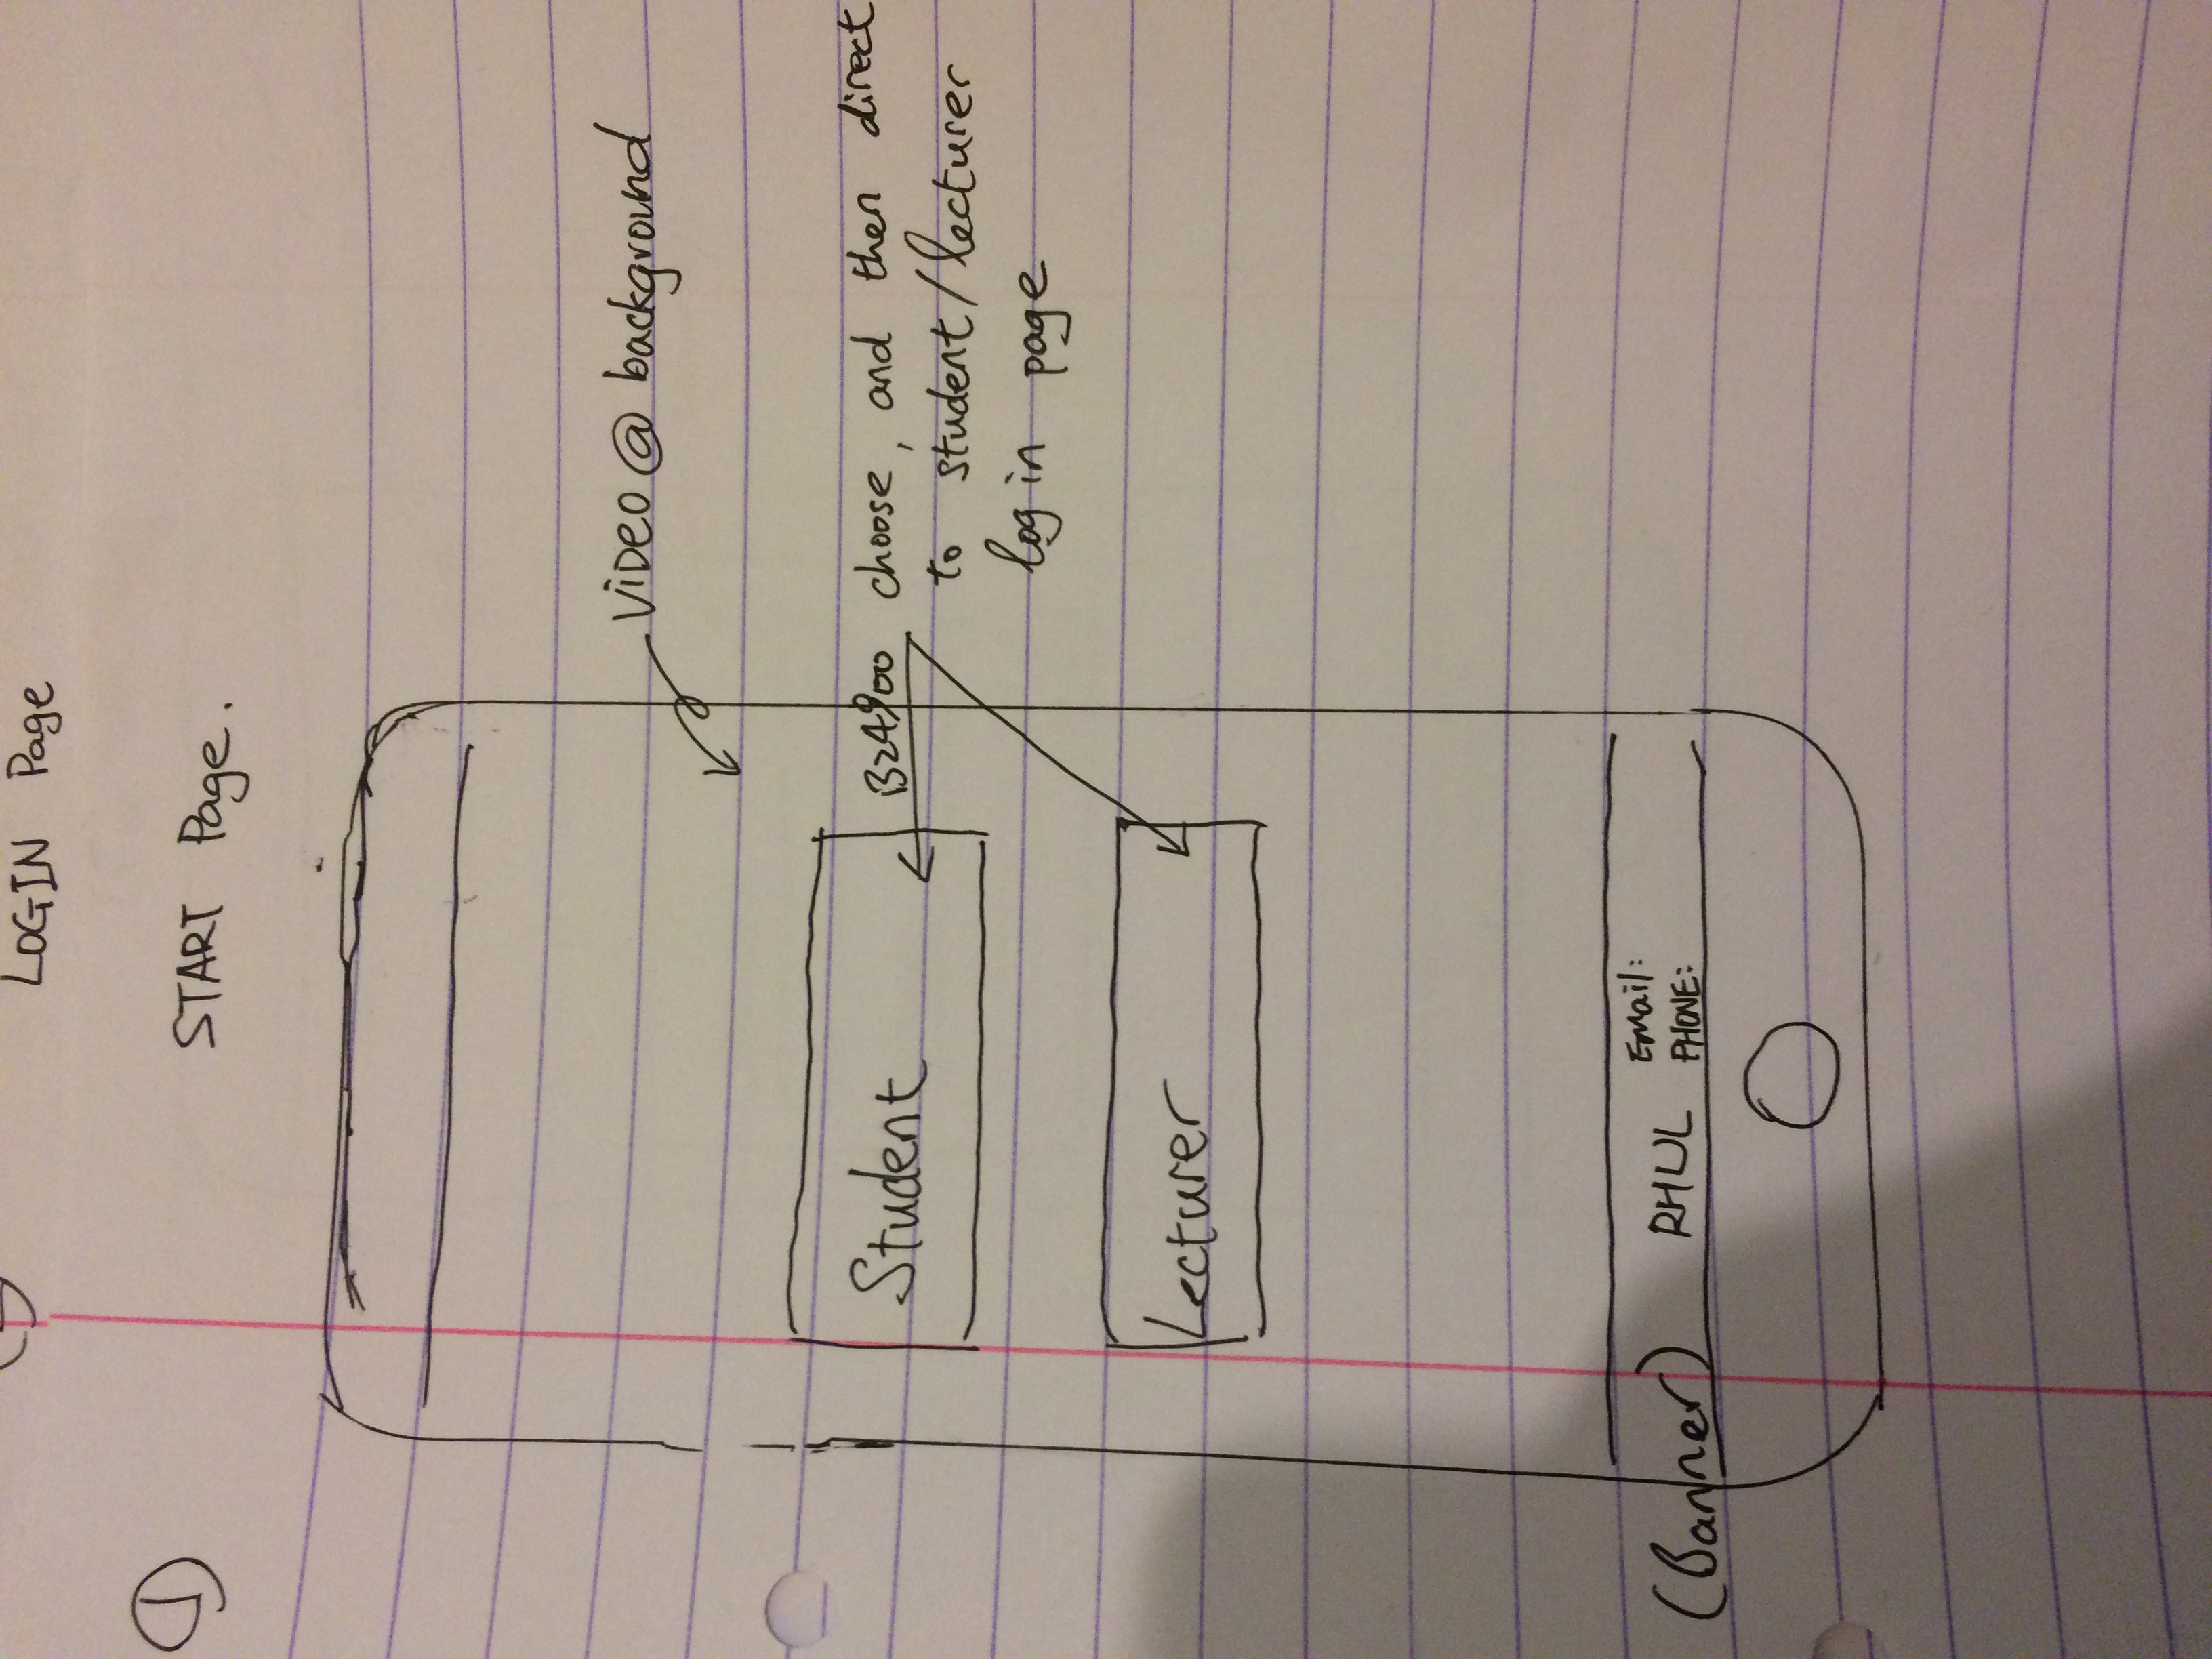 LOGIN Page
①
START Page.
VIDEO @ background
Student
B24900 choose, and then direct
to student/lecturer
log in page
Lecturer
(Banner) RHUL Email:
PHONE: